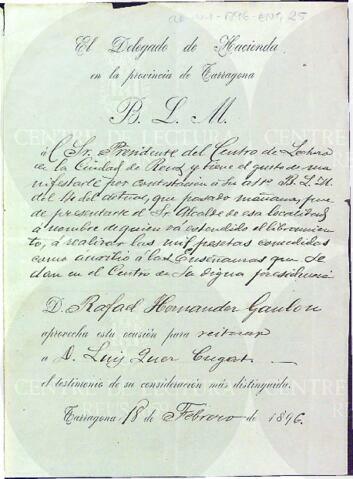 El Delegado de Hacienda
en la provincia de Tarragona
B. L. M.
á l Sr. Presidente del Centro de Lectura
de la Ciudad de Reus y tiene el gusto de ma
nifestarle por contestación á su atto B. L. M.
del 14 del actual, que pasado mañana, pue
de presentarse el Sr. Alcalde de esa localidad
á nombre de quien vá estendido el libramien
to, á realizar las mil pesetas concedidas
como auxilio á las Enseñanzas que se
dan en el Centro de su digna presidencia
D. Rafael Hernandez
aprovecha esta ocasión para reiterar
a D. Luis Quer Cugat
el testimonio de su consideración más distinguida.
Tarragona, 18 de Febrero de 1896.
CENTRE DE LECTURA